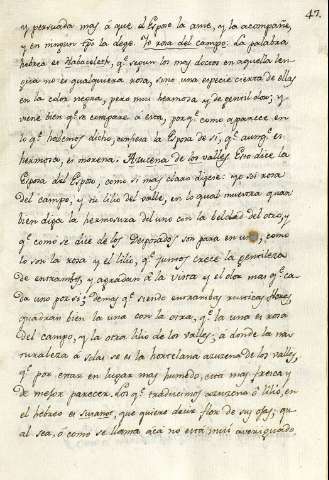 47.
y persuada mas á que el Esposo la ame, y la acompañe,
y en ningun tpo la dege. Yo rosa del campo. La palabra
hebrea es Habacelech, qᵉ segun los mas doctos en aquella len-
gua no es qualquiera rosa, sino una especie cierta de ellas
en la color negra, pero mui hermosa y de gentil olor; y
viene bien qᵉ se compare á esta, porqᵉ como aparece en
lo qᵉ habemos dicho, confiesa la Esposa de si, qᵉ aunqᵉ es
hermosa, es morena. Azucena de los valles. Esto dice la
Esposa del Esposo, como si mas claro digese: yo soi rosa
del campo, y tu lilio del valle, en lo qual muestra quan
bien diga la hermosura del uno con la beldad del otro, y
qᵉ como se dice de los Desposados son para en uno, como
lo son la rosa y el lilio, qᵉ juntos crece la gentileza
de entrambos, y agradan á la vista y el olor mas qᵉ ca-
da uno por si: demas qᵉ siendo entrambas rusticas flores,
quadran bien la una con la otra, qᵉ la una es rosa
del campo, y la otra lilio de los valles, á donde la na-
turaleza á solas se es la hortelana azucena de los valles,
qᵉ por estar en lugar mas humedo, está mas fresca y
de mejor parecer. Lo qᵉ traducimos azucena ó lilio, en
el hebreo es que quiere decir flor de sus ojas; qu
al sea, ó como se llama acá no está mui averiguado.